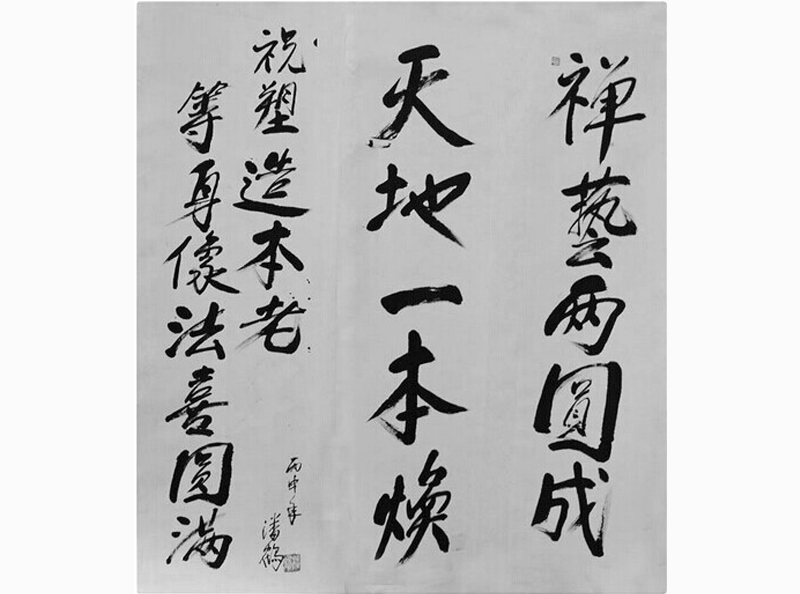 禅藝两圓成
天地一本煥
祝塑造本老
等身像法喜圓满
丙申年
潘鶴